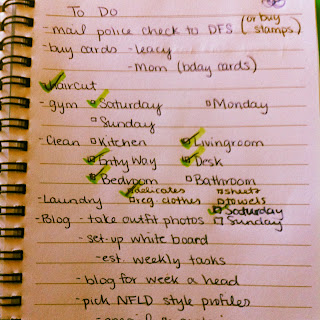 To Do
- mail police check to DFS (or buy stamps)
- buy cards - leacy
- Mom (bday cards)
haircut
- gym Saturday Monday
Sunday
- Clean Kitchen Livingroom
Entry Way Desk
Bedroom Bathroom
delicates sheets
- Laundry reg. clothes towels
Saturday
- Blog - take outfit photos Sunday
- set-up white board
- est. weekly tasks
- blog for week a head
- pick NFLD style profiles